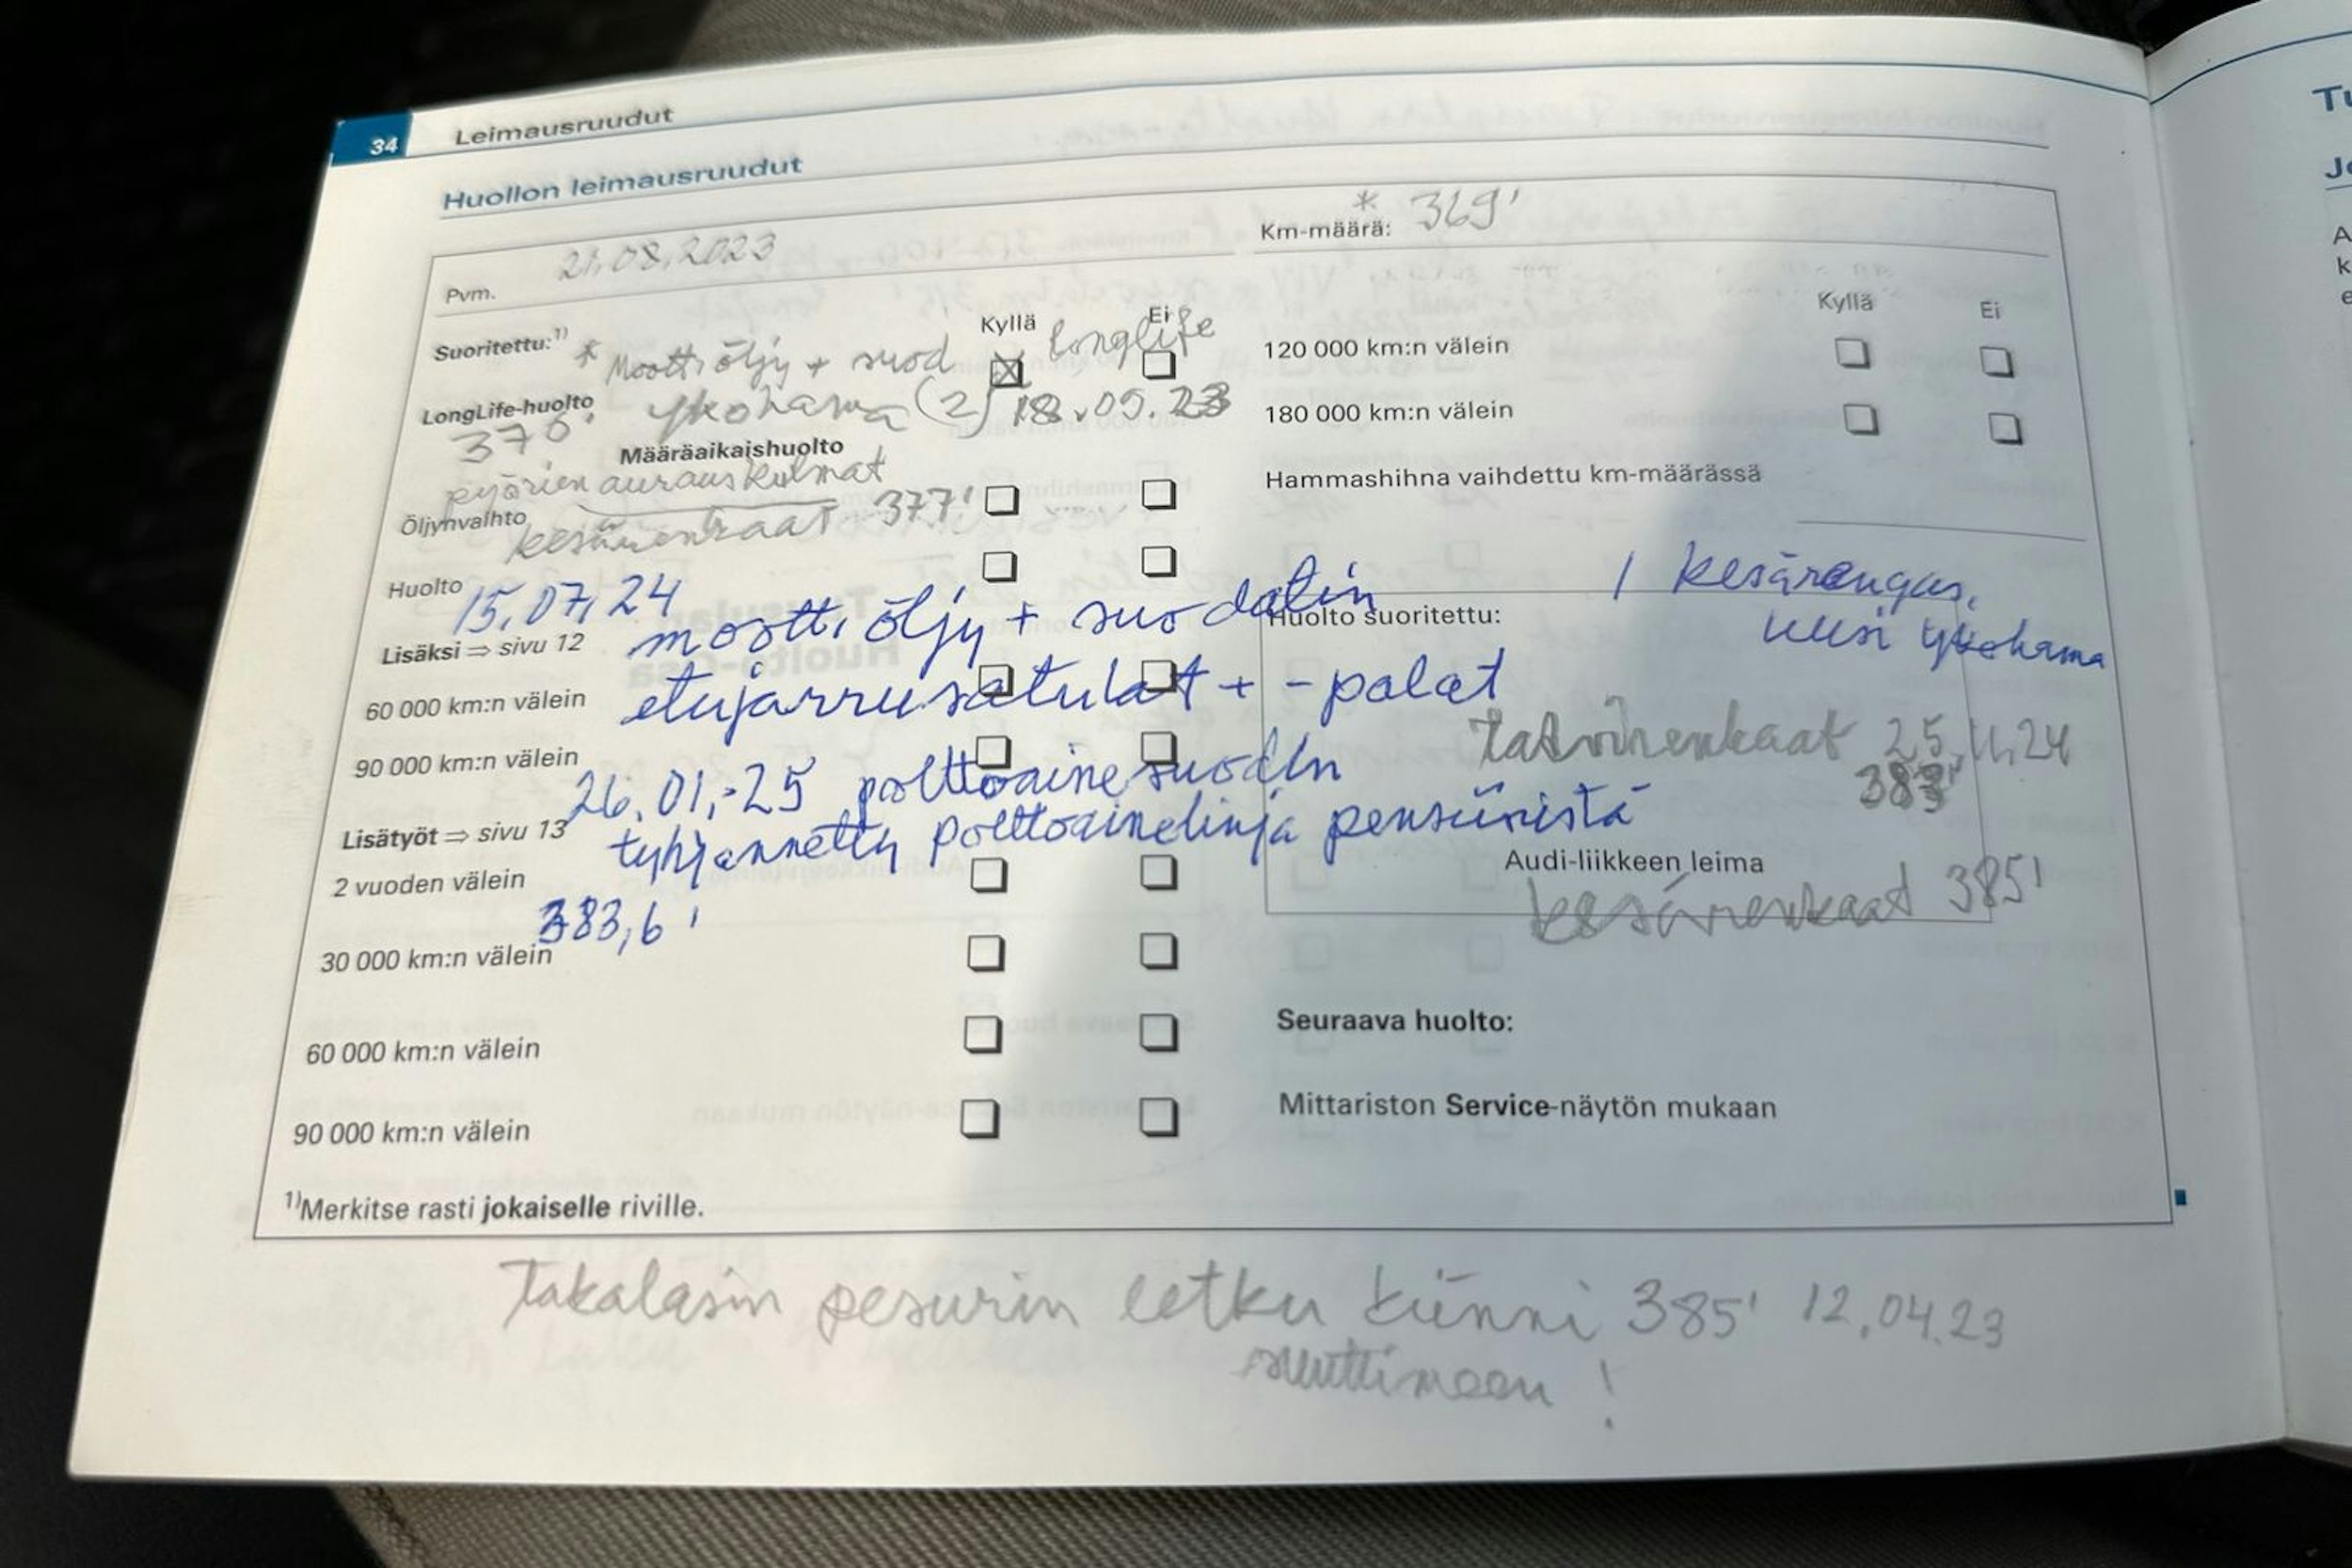 34 Leimausruudut
Huollon leimausruudut
Pvm. 21.08.2023
Km-määrä: * 369'
Kyllä Ei
Suoritettu:1) * Moott. öljy + suod longlife
LongLife-huolto ykohama (2) 18.09.23
376'
Määräaikaishuolto
pyörien aurauskulmat
Öljynvaihto kesärenkaat 377'
Huolto
15.07.24
Lisäksi ⇒ sivu 12 moott. öljy + suodatin
60 000 km:n välein etujarrusatulat + -palat
90 000 km:n välein
26.01.-25 polttoainesuodin
Lisätyöt ⇒ sivu 13 tyhjennetty polttoainelinja pensiinistä
2 vuoden välein
383,6'
30 000 km:n välein
60 000 km:n välein
90 000 km:n välein
1)Merkitse rasti jokaiselle riville.
Kyllä Ei
120 000 km:n välein
180 000 km:n välein
Hammashihna vaihdettu km-määrässä
1 kesärengas,
uusi ykohama
Huolto suoritettu:
talvirenkaat 25.11.24
383'
Audi-liikkeen leima
kesärenkaat 385'
Seuraava huolto:
Mittariston Service-näytön mukaan
Takalasin pesurin letku kiinni 385' 12.04.23
suuttimeen !
Tu